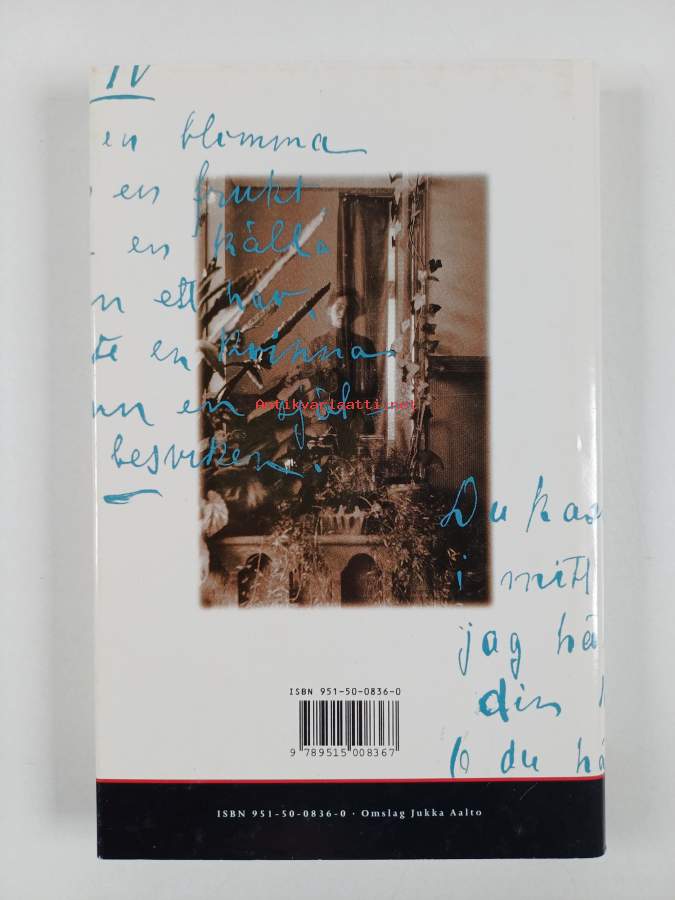 IV
en blomma
en frukt
en källa
n ett hav,
te en kvinna
nn en själ –
besviken.
Antikvariaatti.net
Du kas
i mitt
jag hä
din
O du hä
ISBN 951-50-0836-0
9 789515 008367
ISBN 951-50-0836-0 · Omslag Jukka Aalto